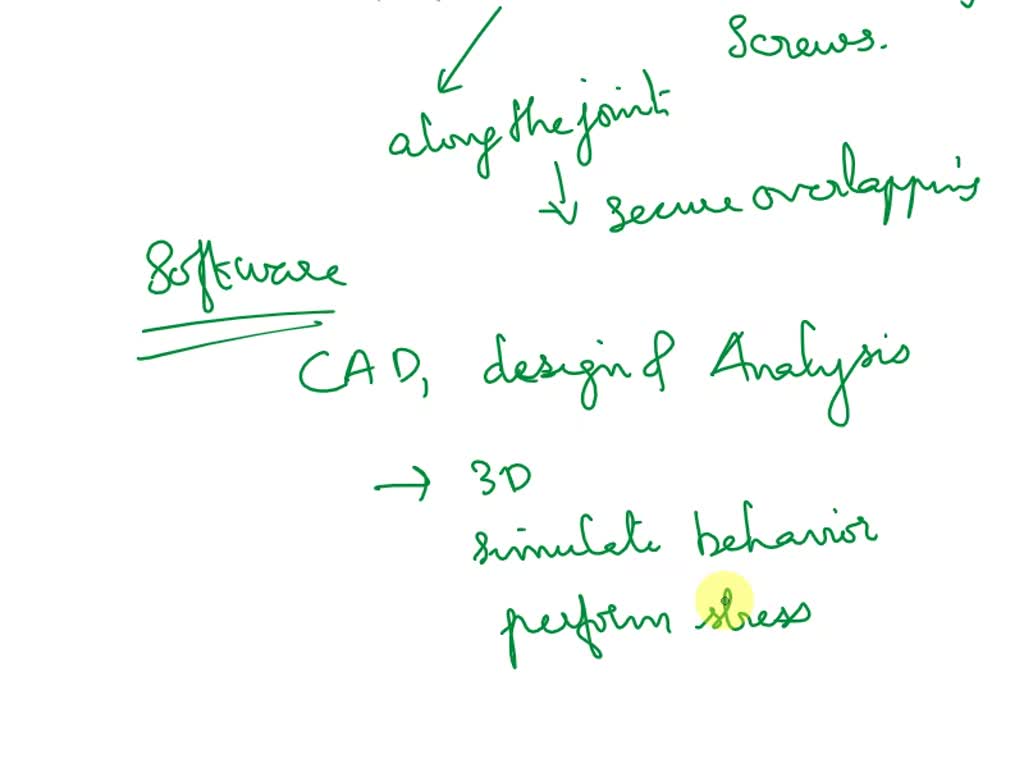 Screws.
along the joint
secure overlapping
Software
CAD, design & Analysis
→ 3D
simulate behavior
perform stress